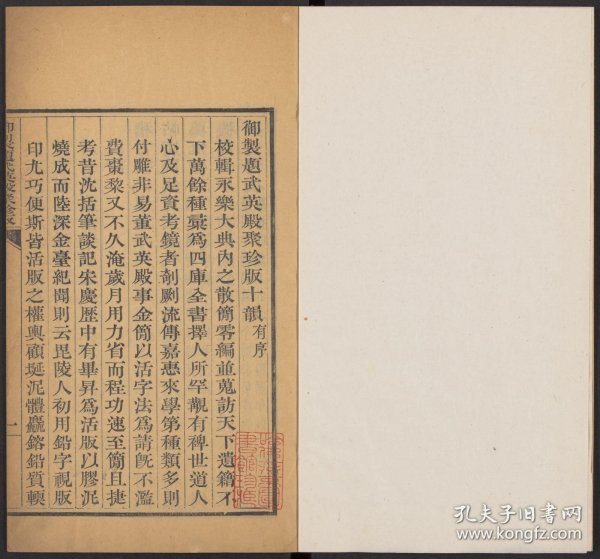 御製題武英殿聚珍版十韻有序
校輯永樂大典內之散簡零編並蒐訪天下遺籍不
下萬餘種彙為四庫全書擇人所罕覯有裨世道人
心及足資考鏡者剞劂流傳嘉惠來學第種類多則
付雕非易董武英殿事金簡以活字法為請既不濫
費棗棃又不久淹歲月用力省而程功速至簡且捷
考昔沈括筆談記宋慶歷中有畢昇為活版以膠泥
燒成而陸深金臺紀聞則云毘陵人初用鉛字視版
印尤巧便斯皆活版之權輿顧埏泥體麤鎔鉛質輭
一
孔夫子旧书网
www.kongfz.com